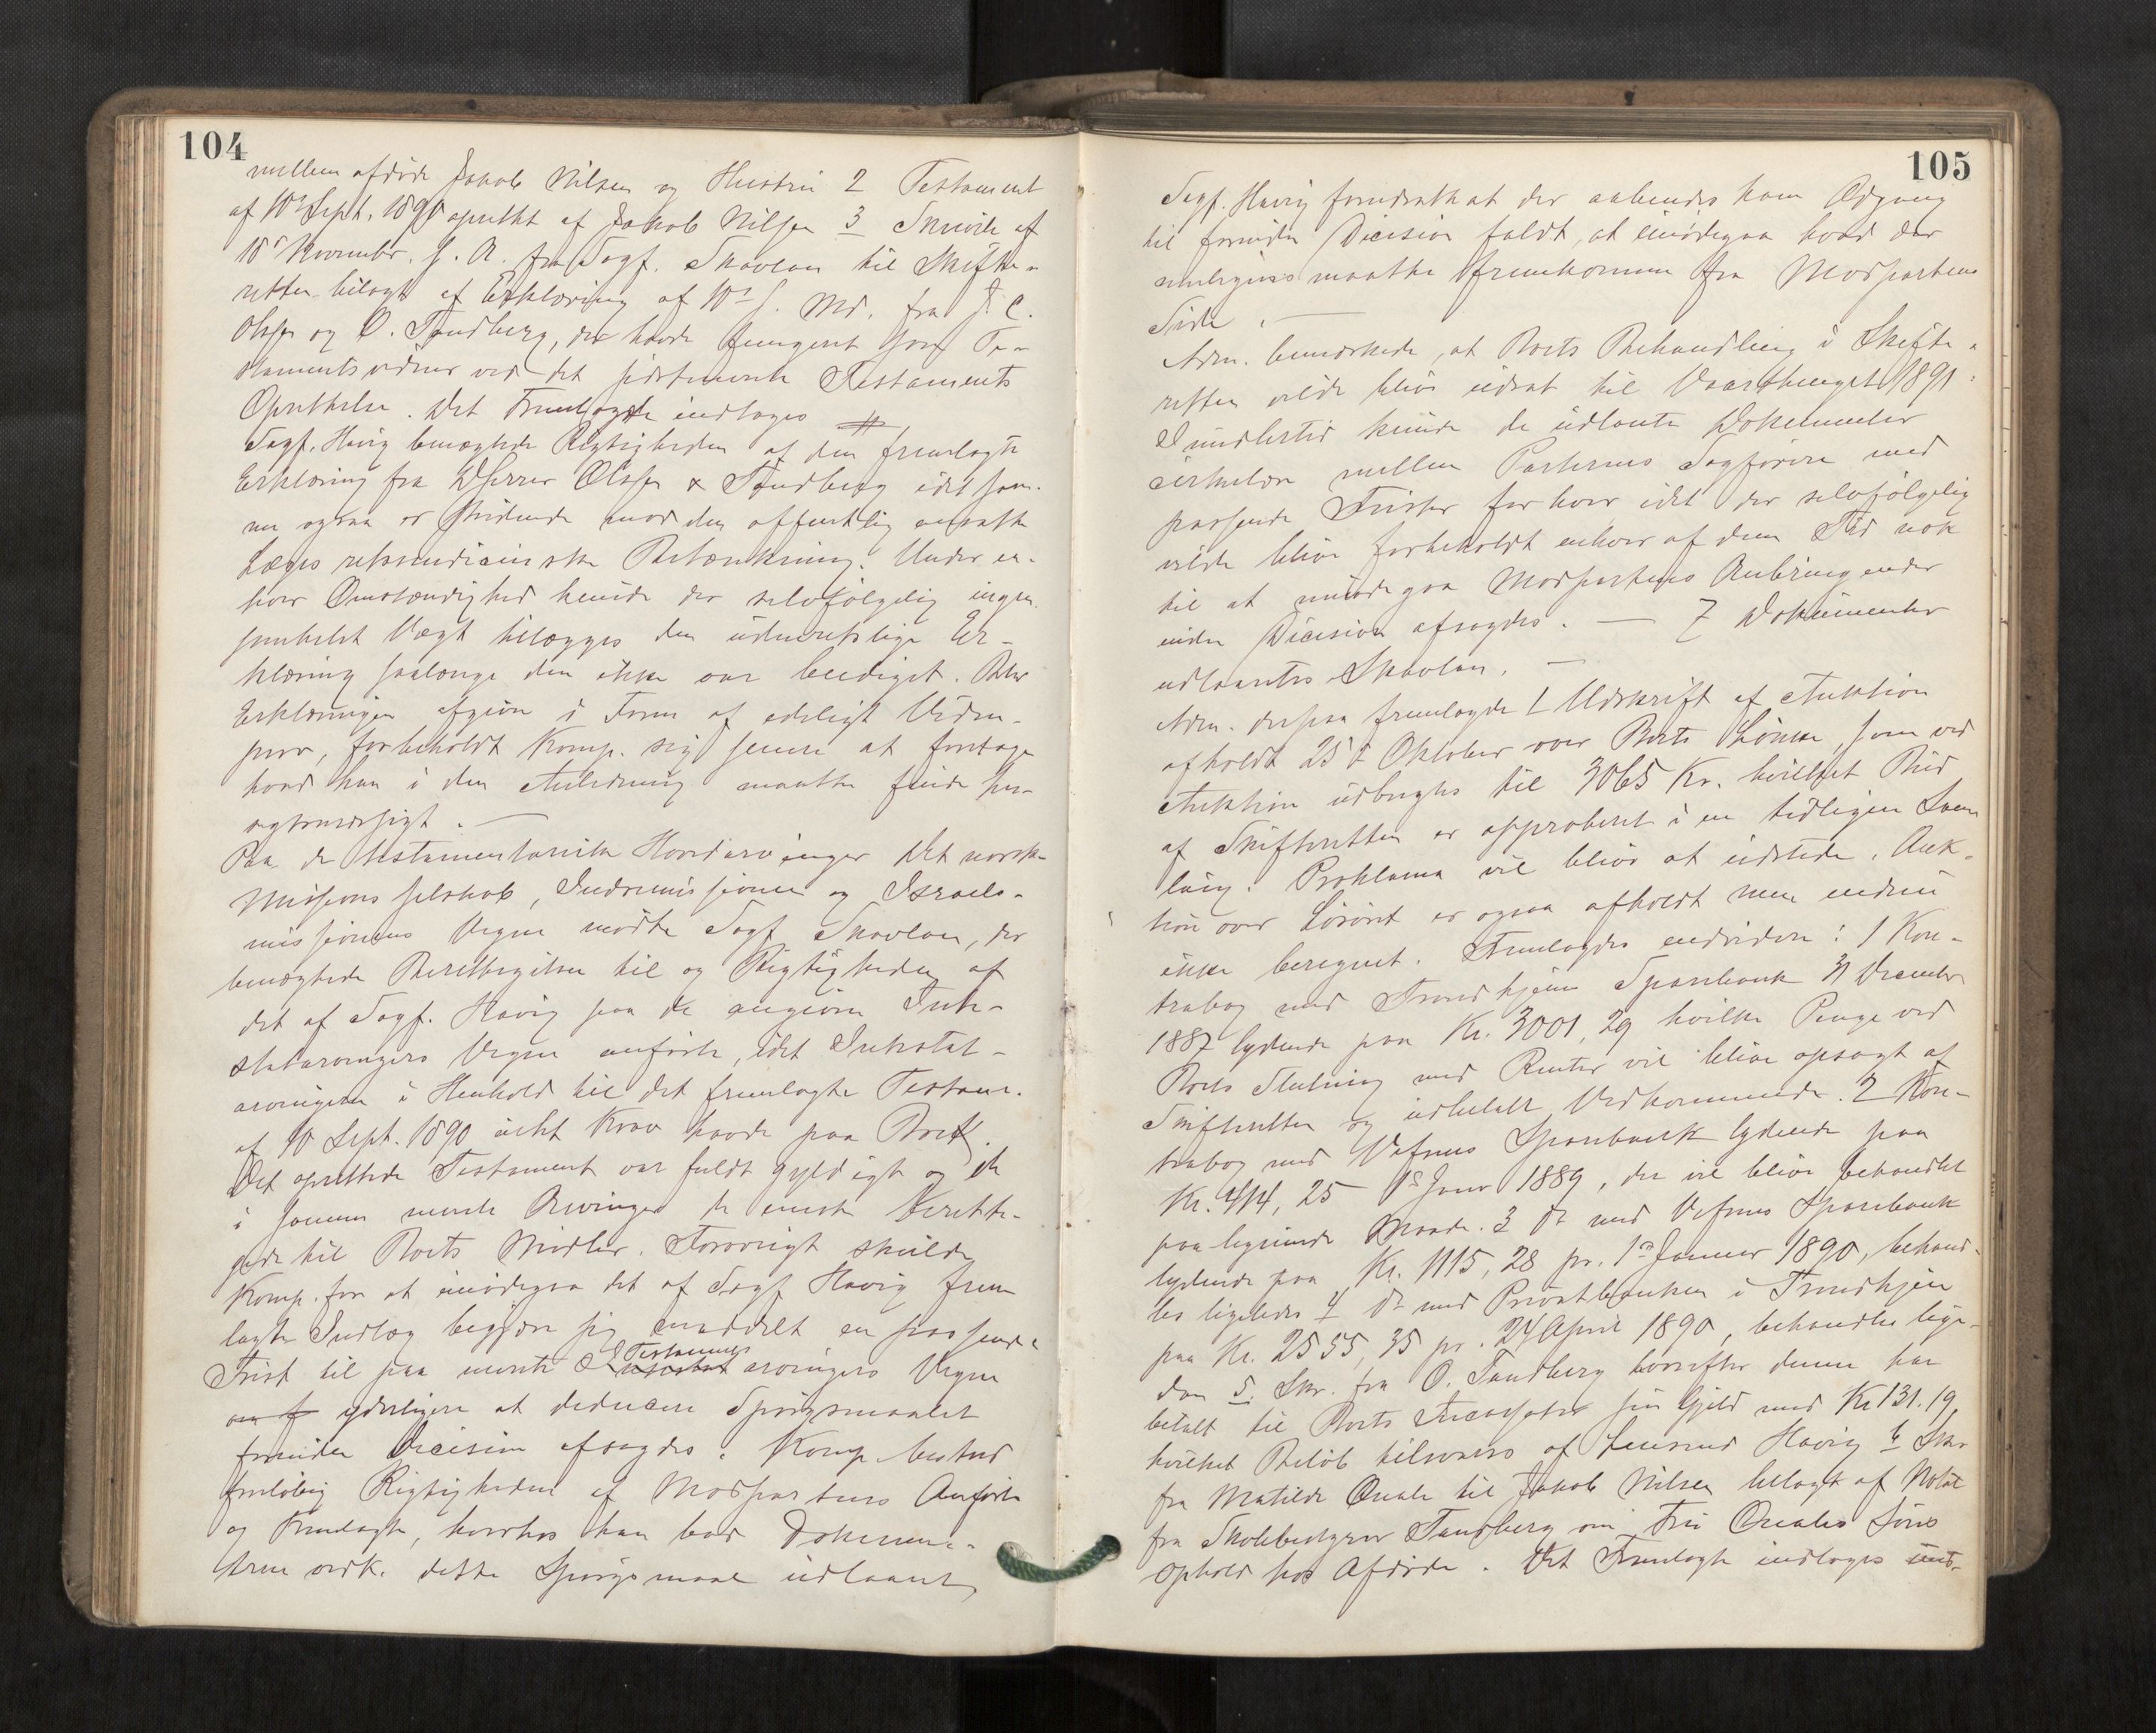 104
mellem afdøde Jakob Nilsen og Hustru 2 Testament
af 10de Sept. 1890 oprettet af Jakob Nilsen 3 Skrivelse af
18de November f. A. fra Sagf. Skavlan til Skifte-
retten bilagt af Erklæring af 10de s. Md. fra J. C.
Olsen og O. Sandberg, der havde fungeret som Te-
stamentsvidner ved det sidstnævnte Testaments
Oprettelse. Det Fremlagte indtages #
Sagf. Havig benægtede Rigtigheden af den fremlagte
Erklæring fra DHerrer Olsen & Sandberg idet sam-
me ogsaa er stridende mod den offentlig ansatte
Læges retsmedicinske Betænkning. Under en-
hver Omstændighed kunde der selvfølgelig ingen
somhelst Vægt tillægges den udenretslige Er-
klæring saalænge den ikke var beediget. Blev
Erklæringen afgiven i Form af edeligt Vidne-
prov, forbeholdt Komp. sig senere at foretage
hvad han i den Anledning maatte finde hen-
sigtsmæssigt. —
Paa de testamentariske Hovedarvinger Det norske
Missionsselskab, Indremissionen og Israels-
missionens Vegne mødte Sagf. Skavlan, der
benægtede Berettigelsen til og Rigtigheden af
det af Sagf. Havig paa de angivne Inte-
statarvingers Vegne anførte, idet Intestat-
arvingerne i Henhold til det fremlagte Testam.
af 10 Sept. 1890 intet Krav havde paa Boet.
Det oprettede Testament var fuldt gyldigt og de
i samme nævnte Arvinger de eneste beretti-
gede til Boets Midler. Forøvrigt skulde
Komp. for at imødegaa det af Sagf. Havig frem
lagte Indlæg begjære sig meddelt en passende
Frist til paa nævnte Testaments
Intestat arvingers Vegne
yderligere at deducere Spørgsmaalet
forinden Decision afsagdes. Komp. bestred
foreløbig Rigtigheden af Modpartens Anførte
og Fremlagte, hvorhos han bad Dokumen-
terne vedk. dette Spørgsmaal udlaant,
105
Sagf. Havig forudsatte at der aabendes ham Adgang
til forinden Decision faldt, at imødegaa hvad der
muligens maatte fremkomme fra Modpartens
Side. —
Adm. bemærkede, at Boets Behandling i Skifte-
retten vilde blive udsat til Vaarthinget 1891.
Imidlertid kunde de udlaante Dokumenter
cirkulere mellem Parternes Sagførere med
passende Frister for hver idet der selvfølgelig
vilde blive forbeholdt enhver af dem Tid nok
til at imødegaa Modpartens Anbringender
inden Decision afsagdes. — 7 Dokumenter
udlaantes Skavlan. —
Adm. derpaa fremlagde 1 Udskrift af Auktion
afholdt 25de Oktober over Boets Løsøre, som ved
Auktion udbragtes til 3065 Kr. hvilket Bud
af Skifteretten er approberet i en tidligere Sam
ling. Proklama vil blive at udstede. Auk-
tion over Løsøret er ogsaa afholdt men endnu
ikke beregnet. Fremlagdes endvidere: 1 Kon-
trabog med Trondhjems Sparebank 31 December
1887 lydende paa Kr. 3001,29 hvilke Penge ved
Boets Slutning med Renter vil blive opsagt af
Skifteretten og udbetalt Vedkommende. 2 Kon-
trabog med Vefsens Sparebank lydende paa
Kr. 414,25 1ste Janr 1889, der vil blive behandlet
paa lignende Maade. 3 do med Vefsens Sparebank
lydende paa Kr. 1115,28 pr. 1ste Januar 1890, behand-
les ligeledes 4 do med Privatbanken i Trondhjem
paa Kr. 2555,35 pr. 24 April 1890, behandles lige-
dan 5. Skr. fra O. Sandberg hvorefter denne har
betalt til Boets Incassator sin Gjeld med Kr 131.19,
hvilket Beløb tilsvares af Lensmand Havig 6 Skr.
fra Matilde Qvale til Jakob Nilsen bilagt af Notat
fra Skolebestyrer Sandberg om Fru Qvales Søns
Ophold hos Afdøde. Det Fremlagte indtages und-